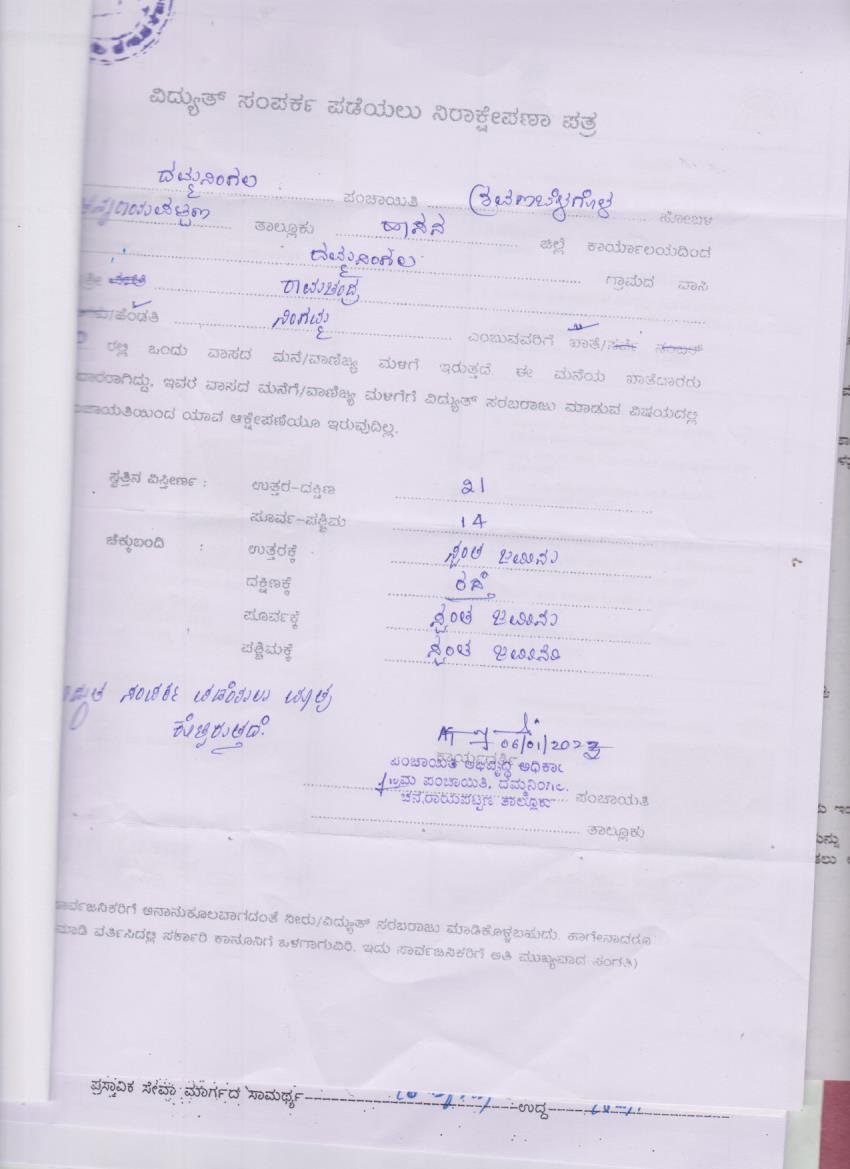 ವಿದ್ಯುತ್ ಸಂಪರ್ಕ ಪಡೆಯಲು ನಿರಾಕ್ಷೇಪಣಾ ಪತ್ರ
ದಮ್ಮನಿಂಗಲ ಪಂಚಾಯಿತಿ ಶ್ರವಣಬೆಳಗೊಳ ಹೋಬಳಿ
ಚನ್ನರಾಯಪಟ್ಟಣ ತಾಲ್ಲೂಕು ಹಾಸನ ಜಿಲ್ಲೆ ಕಾರ್ಯಾಲಯದಿಂದ
ದಮ್ಮನಿಂಗಲ ಗ್ರಾಮದ ವಾಸಿ
ಶ್ರೀ ರಾಮಚಂದ್ರ
ಹೆಂಡತಿ ನಿಂಗಮ್ಮ ಎಂಬುವವರಿಗೆ ಖಾತೆ/ಸರ್ವೆ ನಂಬರ್
ರಲ್ಲಿ ಒಂದು ವಾಸದ ಮನೆ/ವಾಣಿಜ್ಯ ಮಳಿಗೆ ಇರುತ್ತದೆ. ಈ ಮನೆಯ ಖಾತೆದಾರರು
ದಾರರಾಗಿದ್ದು, ಇವರ ವಾಸದ ಮನೆಗೆ/ವಾಣಿಜ್ಯ ಮಳಿಗೆಗೆ ವಿದ್ಯುತ್ ಸರಬರಾಜು ಮಾಡುವ ವಿಷಯದಲ್ಲಿ
ಪಂಚಾಯತಿಯಿಂದ ಯಾವ ಆಕ್ಷೇಪಣೆಯೂ ಇರುವುದಿಲ್ಲ.
ಸ್ವತ್ತಿನ ವಿಸ್ತೀರ್ಣ : ಉತ್ತರ-ದಕ್ಷಿಣ 21
ಪೂರ್ವ-ಪಶ್ಚಿಮ 14
ಚೆಕ್ಕುಬಂದಿ : ಉತ್ತರಕ್ಕೆ ಸ್ವಂತ ಜಮೀನು
ದಕ್ಷಿಣಕ್ಕೆ ರಸ್ತೆ
ಪೂರ್ವಕ್ಕೆ ಸ್ವಂತ ಜಮೀನು
ಪಶ್ಚಿಮಕ್ಕೆ ಸ್ವಂತ ಜಮೀನು
ಸಂಪರ್ಕ ಪಡೆಯಲು ಮಾತ್ರ
06/01/2023
ಕಾರ್ಯದರ್ಶಿ
ಪಂಚಾಯತಿ ಅಭಿವೃದ್ಧಿ ಅಧಿಕಾರಿ
ಗ್ರಾಮ ಪಂಚಾಯಿತಿ, ದಮ್ಮನಿಂಗಲ, ಪಂಚಾಯತಿ
ಚನ್ನರಾಯಪಟ್ಟಣ ತಾಲ್ಲೂಕು
ತಾಲ್ಲೂಕು
ಸಾರ್ವಜನಿಕರಿಗೆ ಅನಾನುಕೂಲವಾಗದಂತೆ ನೀರು/ವಿದ್ಯುತ್ ಸರಬರಾಜು ಮಾಡಿಕೊಳ್ಳಬಹುದು. ಹಾಗೇನಾದರೂ
ಮಾಡಿ ವರ್ತಿಸಿದಲ್ಲಿ ಸರ್ಕಾರಿ ಕಾನೂನಿಗೆ ಒಳಗಾಗುವಿರಿ. ಇದು ಸಾರ್ವಜನಿಕರಿಗೆ ಅತಿ ಮುಖ್ಯವಾದ ಸಂಗತಿ)
ಪ್ರಸ್ತಾವಿಕ ಸೇವಾ ಮಾರ್ಗದ ಸಾಮರ್ಥ್ಯ ಉದ್ದ